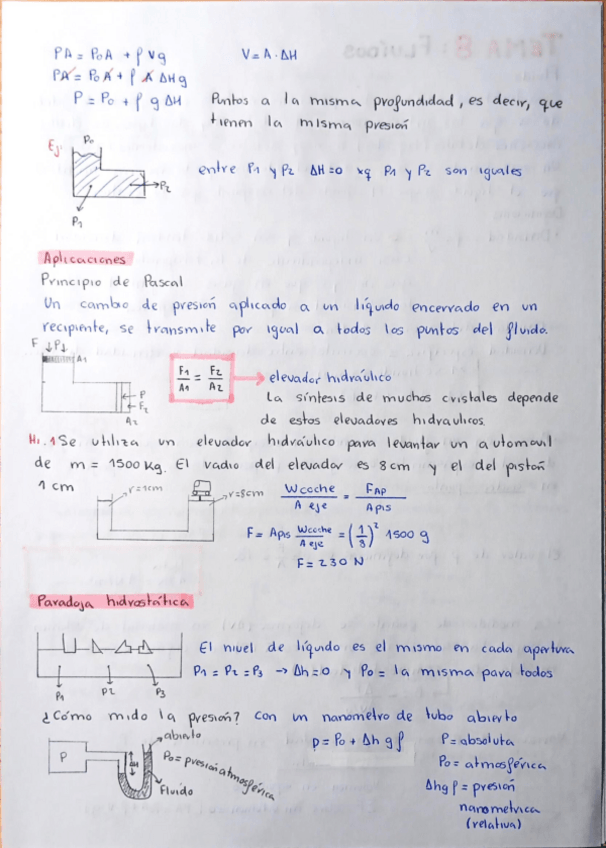 PA = P₀A + ρ V g   V = A · ΔH
PA = P₀A + ρ A ΔH g
P = P₀ + ρ g ΔH   Puntos a la misma profundidad, es decir, que
tienen la misma presión
Ej:
P₀
P₂
P₁
entre P₁ y P₂ ΔH=0 xq P₁ y P₂ son iguales
Aplicaciones
Principio de Pascal
Un cambio de presión aplicado a un líquido encerrado en un
recipiente, se transmite por igual a todos los puntos del fluido
F ↓P↓ A₁
P
F₂
A₂
F₁/A₁ = F₂/A₂ → elevador hidráulico
La síntesis de muchos cristales depende
de estos elevadores hidraulicos.
Hi. 1 Se utiliza un elevador hidráulico para levantar un automóvil
de m = 1500 kg. El vadio del elevador es 8cm y el del pistón
1 cm
r=1cm
r=8cm
Wcoche/A eje = FAp/Apis
F = Apis Wcoche/A eje = (1/8)² 1500 g
F = 230 N
Paradoja hidrostática
P₁ P₂ P₃
El nivel de líquido es el mismo en cada apertura
P₁ = P₂ = P₃ → Δh=0 y P₀ = la misma para todos
¿Cómo mido la presión? Con un nanómetro de tubo abierto
P
abierto
ΔH
P₀ = presión atmosférica
Fluido
p = P₀ + Δh g ρ
P = absoluta
P₀ = atmosférica
Δh g ρ = presión
nanometrica
(relativa)